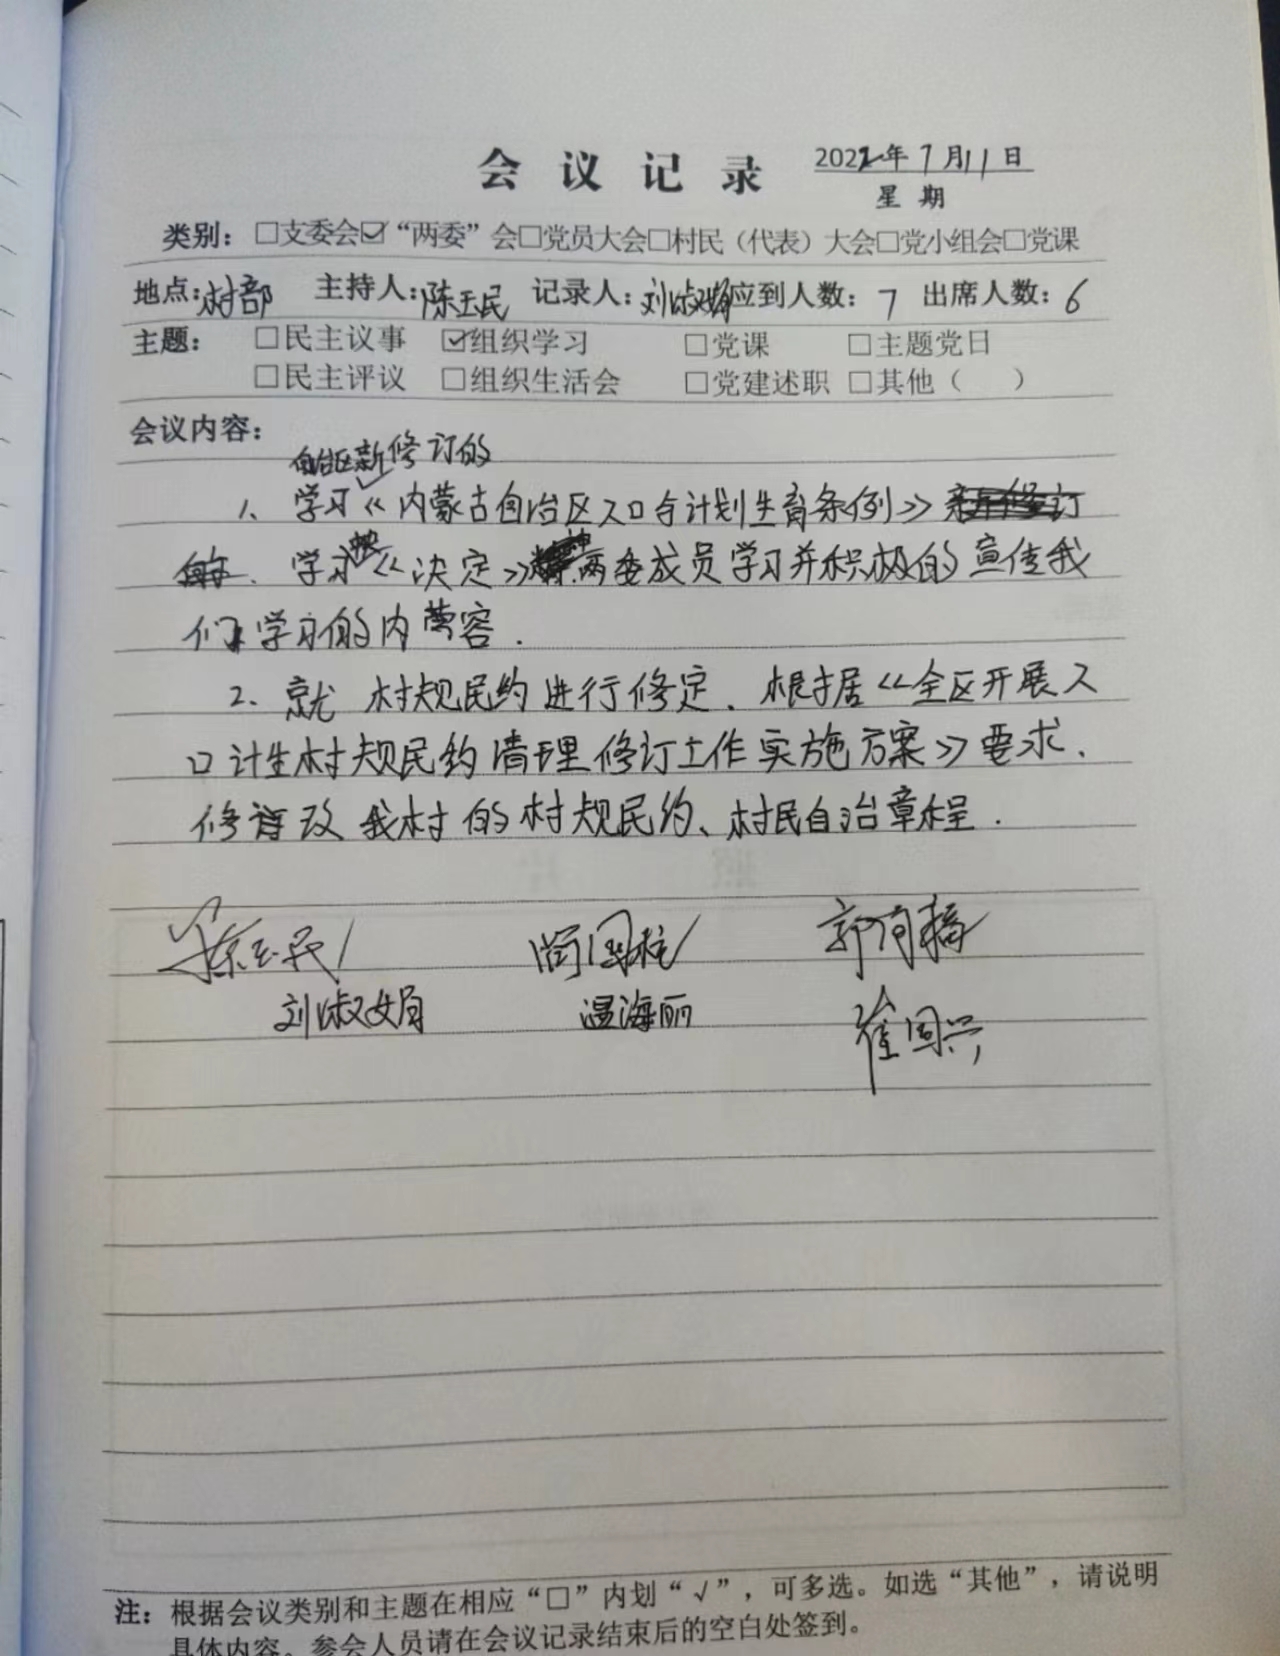 会议记录 2022年7月11日
星期
类别：□支委会☑“两委”会□党员大会□村民（代表）大会□党小组会□党课
地点：村部 主持人：陈玉民 记录人：刘淑娟 应到人数：7 出席人数：6
主题：□民主议事 ☑组织学习 □党课 □主题党日
□民主评议 □组织生活会 □党建述职 □其他（ ）
会议内容：
自治区新修订的
1、学习《内蒙古自治区人口与计划生育条例》新修订
的、学习《决定》两委成员学习并积极的宣传我
们学习的内容.
2、就 村规民约进行修定、根据《全区开展人
口计生村规民约清理修订工作实施方案》要求、
修改我村的村规民约、村民自治章程.
陈玉民 国柱 郭
刘淑娟 温海丽 崔国兴
注：根据会议类别和主题在相应“□”内划“√”，可多选。如选“其他”，请说明
具体内容。参会人员请在会议记录结束后的空白处签到。